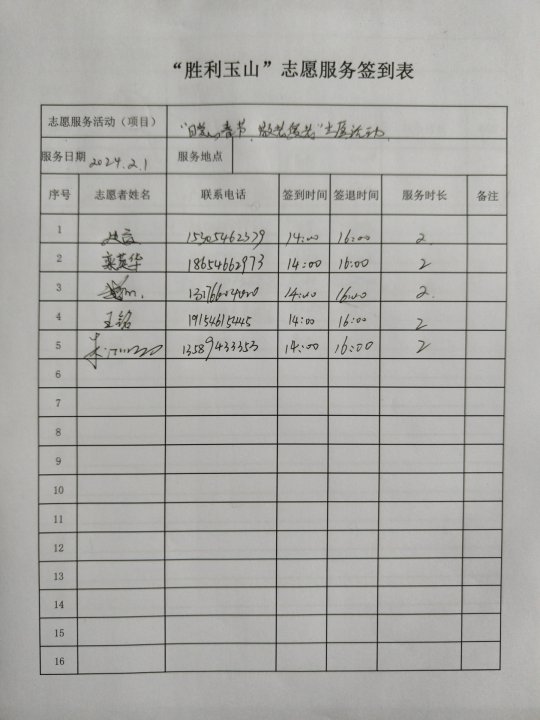 “胜利玉山”志愿服务签到表
志愿服务活动（项目） 春节 活动
服务日期 2024.2.1 服务地点
序号 志愿者姓名 联系电话 签到时间 签退时间 服务时长 备注
1 15305462379 14:00 16:00 2
2 栾英华 18654662973 14:00 16:00 2
3 14:00 16:00 2
4 王铭 19154615445 14:00 16:00 2
5 13589433353 14:00 16:00 2
6
7
8
9
10
11
12
13
14
15
16